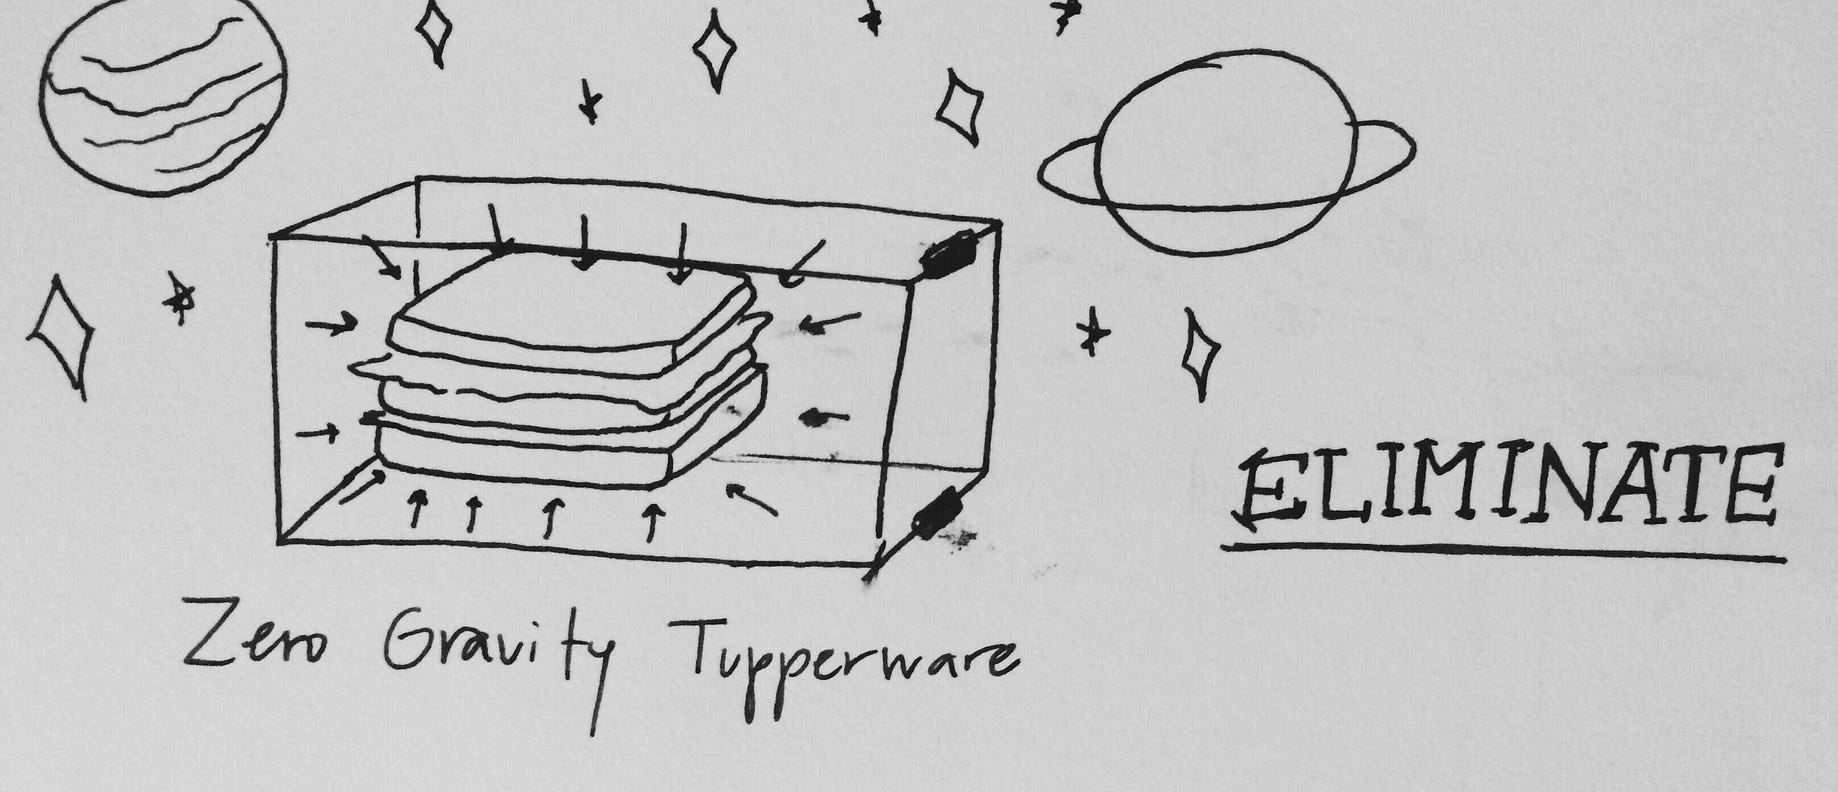 ELIMINATE
Zero Gravity Tupperware